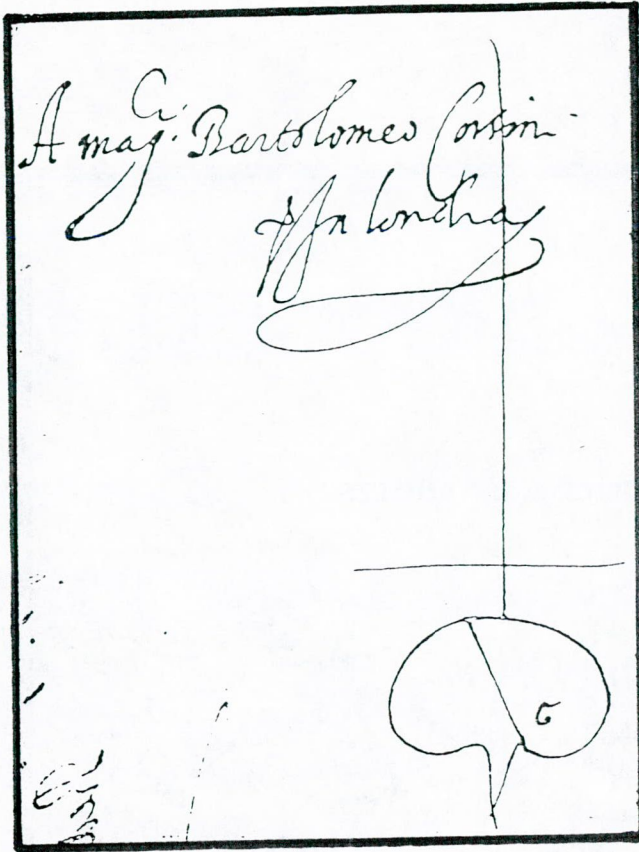 A mag.ci Bartolomeo Corsini
In londra
G